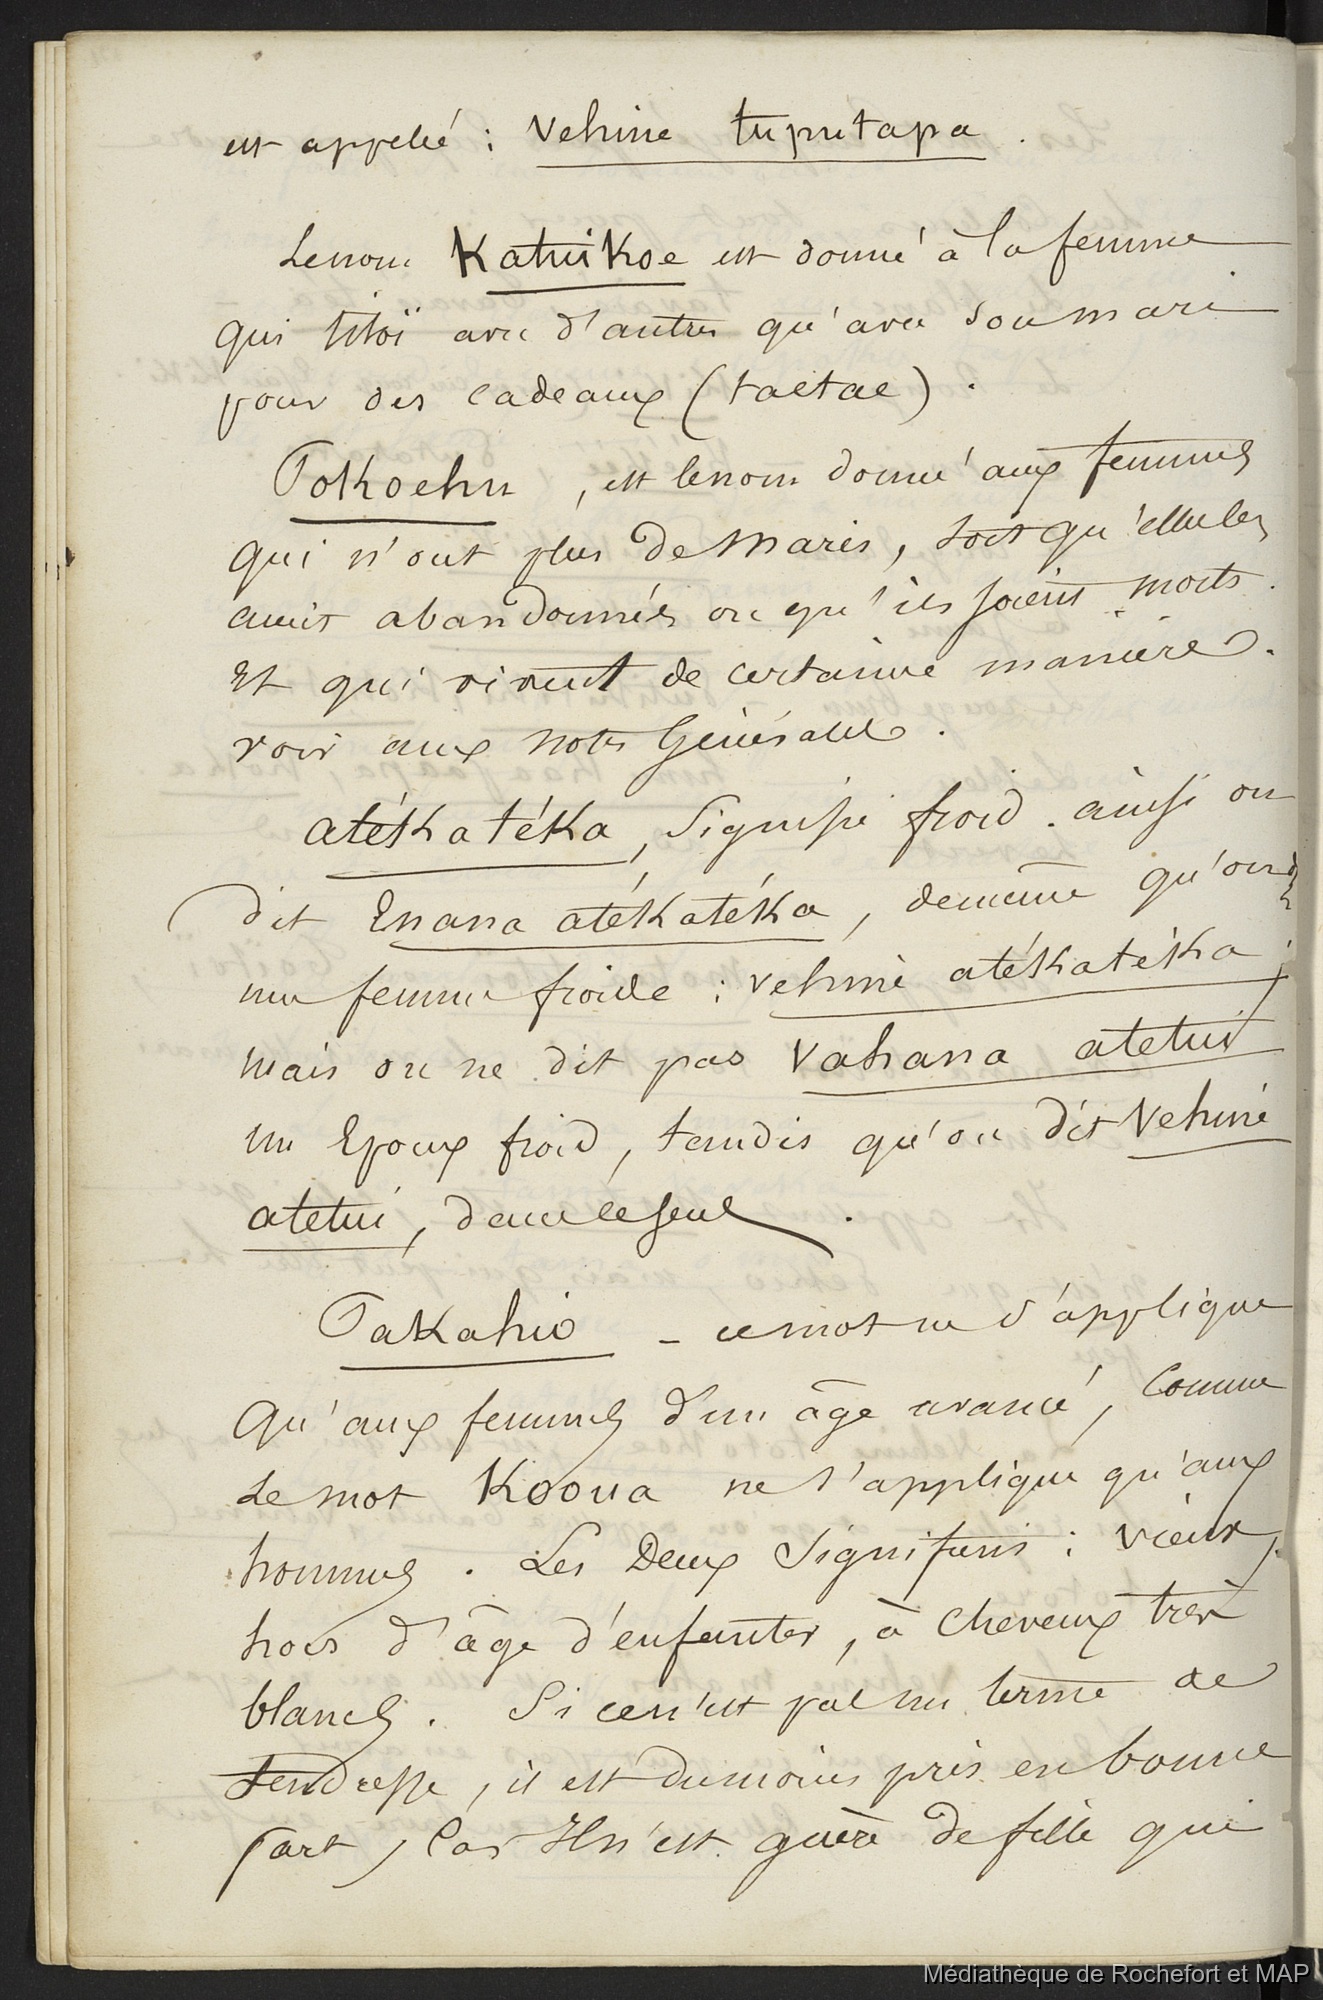 est appelé : Vehine tuputapa .
Le nom Katuikoe est donné à la femme
qui titoï avec d'autres qu'avec son mari
pour des cadeaux (taetae) .
Tokoehu , est le nom donné aux femmes
qui n'ont plus de maris, soit qu'elles les
aient abandonnés ou qu'ils soient morts .
Et qui vivent de certaine manière .
voir aux notes Générales .
atékatéka, signifie froid . ainsi on
dit Enana atékatéka, de même qu'on dit
une femme froide : vehinè atékatéka ;
mais on ne dit pas Vahana atetui
un Epoux froid, tandis qu'on dit Vehiné
atetui, dans le seul .
Takahio - ce mot ne s'applique
qu'aux femmes d'un âge avancé, comme
le mot Kooua ne s'applique qu'aux
hommes . Les Deux signifient : vieux,
hors d'âge d'enfanter, à cheveux très
blancs . Si ce n'est pas un terme de
tendresse, il est du moins pris en bonne
part, car Il n'est guère de fille qui
Médiathèque de Rochefort et MAP